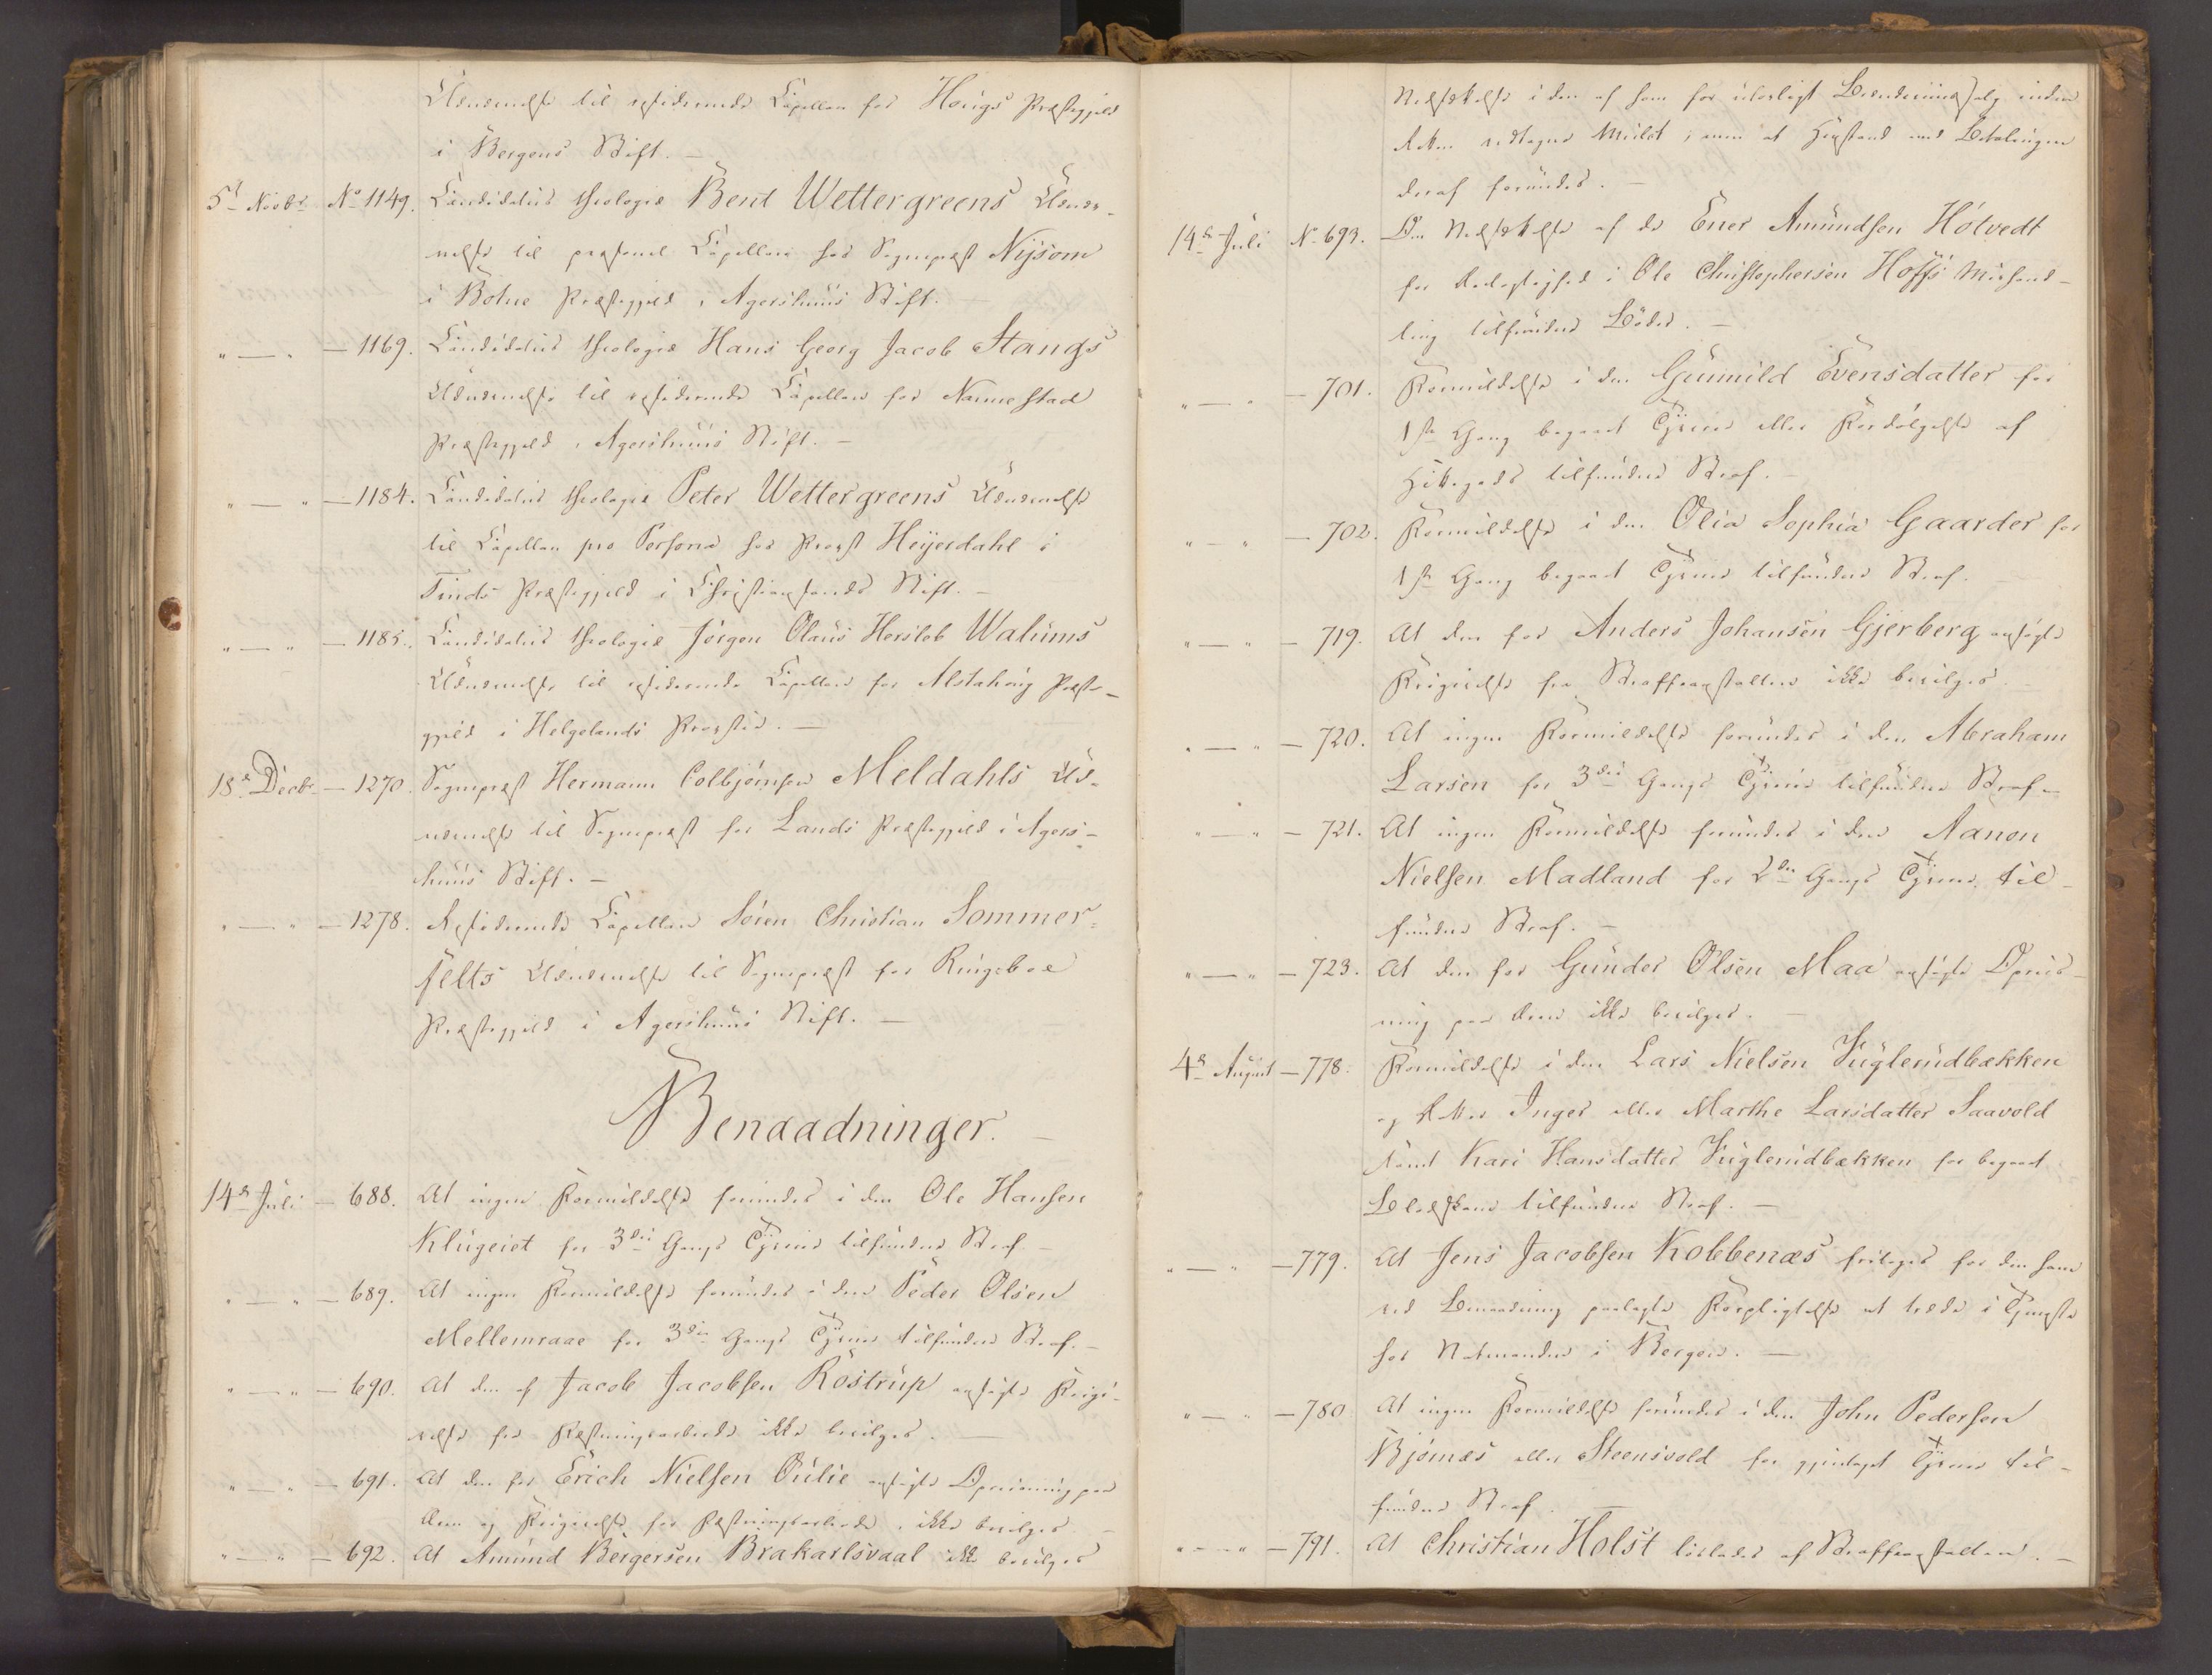 Udnævnelse til residerende Capellan for Hougs Præstegjeld
i Bergens Stift. —
5te Novbr No 1149. Candidatus theologiæ Bent Wettergreens Udnæv-
nelse til personel Capellan hos Sognepræst Nysom
i Botne Præstegjeld, Agershuus Stift.
" — " — 1169. Candidatus theologiæ Hans Georg Jacob Stangs
Udnævnelse til residerende Capellan for Nannestad
Præstegjeld, Agershuus Stift. —
" — " — 1184. Candidatus theologiæ Peter Wettergreens Udnævnelse
til Capellan pro Persona hos Provst Heyerdahl i
Tinds Præstegjeld i Christiansands Stift. —
" — " — 1185. Candidatus theologiæ Jørgen Olaus Hersleb Walnums
Udnævnelse til residerende Capellan for Alstahoug Præste-
gjeld i Helgelands Provstie. —
18de Decbr — 1270. Sognepræst Hermann Colbjørnsen Meldahls Ud-
nævnelse til Sognepræst for Lands Præstegjeld i Agers-
huus Stift. —
" — " — 1278. Residerende Capellan Sören Christian Sommer-
felts Udnævnelse til Sognepræst for Ringeboe
Præstegjeld i Agershuus Stift. —
Benaadninger. —
14de Juli — 688. At ingen Formildelse forundes i den Ole Hansen
Klugeiet for 3die Gangs Tyverie tilfundne Straf. —
" — " — 689. At ingen Formildelse forundes i den Peder Olsen
Mellemraae for 3die Gangs Tyverie tilfundne Straf. —
" — " — 690. At den af Jacob Jacobsen Rostrup ansøgte Frigi-
velse fra Fæstningsarbeide ikke bevilges. —
" — " — 691. At den for Erich Nielsen Oulie ansøgte Opreisning paa
Ære og Frigivelse fra Fæstningsarbeide, ikke bevilges —
" — " — 692. At Amund Bergersen Brakarlsvaal ikke bevilges
Nedsættelse i den af ham for ulovligt Brændeviinssalg inden
Retten vedtagne Mulct, men at Henstand med Betalingen
deraf forundes. —
14de Juli No 693. Om Nedsættelse af de Ener Amundsen Holvedt
for Deelagtighed i Ole Christophersen Hoffs Mishand-
ling tilfundne Bøder. —
" — " — 701. Formildelse i den Gunnild Evensdatter for
1ste Gang begaaet Tyverie eller Fordølgelse af
Hittegods tilfundne Straf. —
" — " — 702. Formildelse i den Olia Sophia Gaarder for
1ste Gang begaaet Tyverie tilfundne Straf.
" — " — 719. At den for Anders Johansen Gjerberg ansøgte
Frigivelse fra Straffeanstalten ikke bevilges.
" — " — 720. At ingen Formildelse forundes i den Abraham
Larsen for 3die Gangs Tyverie tilfundne Straf —
" — " — 721. At ingen Formildelse forundes i den Aanon
Nielsen Madland for 2den Gangs Tyverie til-
fundne Straf. —
" — " — 723. At den for Gunder Olsen Maa ansøgte Opreis-
ning paa Ære ikke bevilges. —
4de August — 778. Formildelse i den Lars Nielsen Kuglerudbækken
og Inger eller Marthe Larsdatter Saavold
samt Kari Hansdatter Kuglerudbækken for begaaet
Blodskam tilfundne Straf. —
" — " — 779. At Jens Jacobsen Kobbenæs fritages for den ham
ved Benaadning paalagte Forpligtelse at træde i Tjeneste
hos Natmanden i Bergen. —
" — " — 780 At ingen Formildelse forundes i den John Pedersen
Bjørnæs eller Steensvold for gjentaget Tyverie til-
fundne Straf. —
" — " — 791. At Christian Holst løslades af Straffeanstalten. —